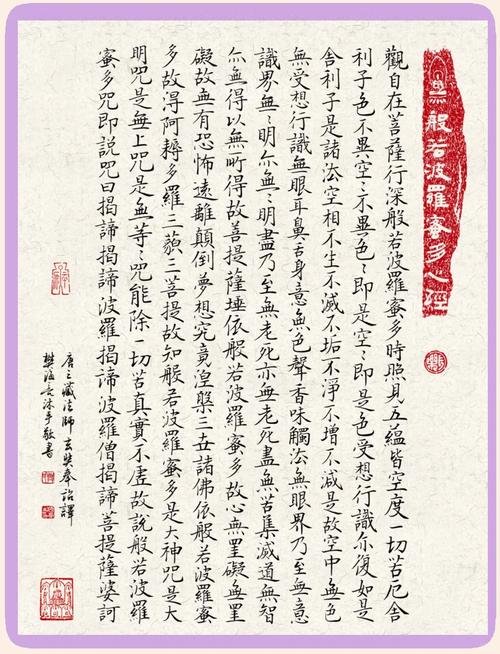 般若波羅蜜多心經
觀自在菩薩行深般若波羅蜜多時照見五蘊皆空度一切苦厄舍
利子色不異空〻不異色〻即是空〻即是色受想行識亦復如是
舍利子是諸法空相不生不滅不垢不淨不增不減是故空中無色
無受想行識無眼耳鼻舌身意無色聲香味觸法無眼界乃至無意
識界無〻明亦無〻明盡乃至無老死亦無老死盡無苦集滅道無智
亦無得以無所得故菩提薩埵依般若波羅蜜多故心無罣礙無罣
礙故無有恐怖遠離顛倒夢想究竟涅槃三世諸佛依般若波羅蜜
多故得阿耨多羅三藐三菩提故知般若波羅蜜多是大神咒是大
明咒是無上咒是無等〻咒能除一切苦真實不虛故說般若波羅
蜜多咒即說咒曰揭諦揭諦波羅揭諦波羅僧揭諦菩提薩婆訶
唐三藏法師玄奘奉詔譯
沐手敬書